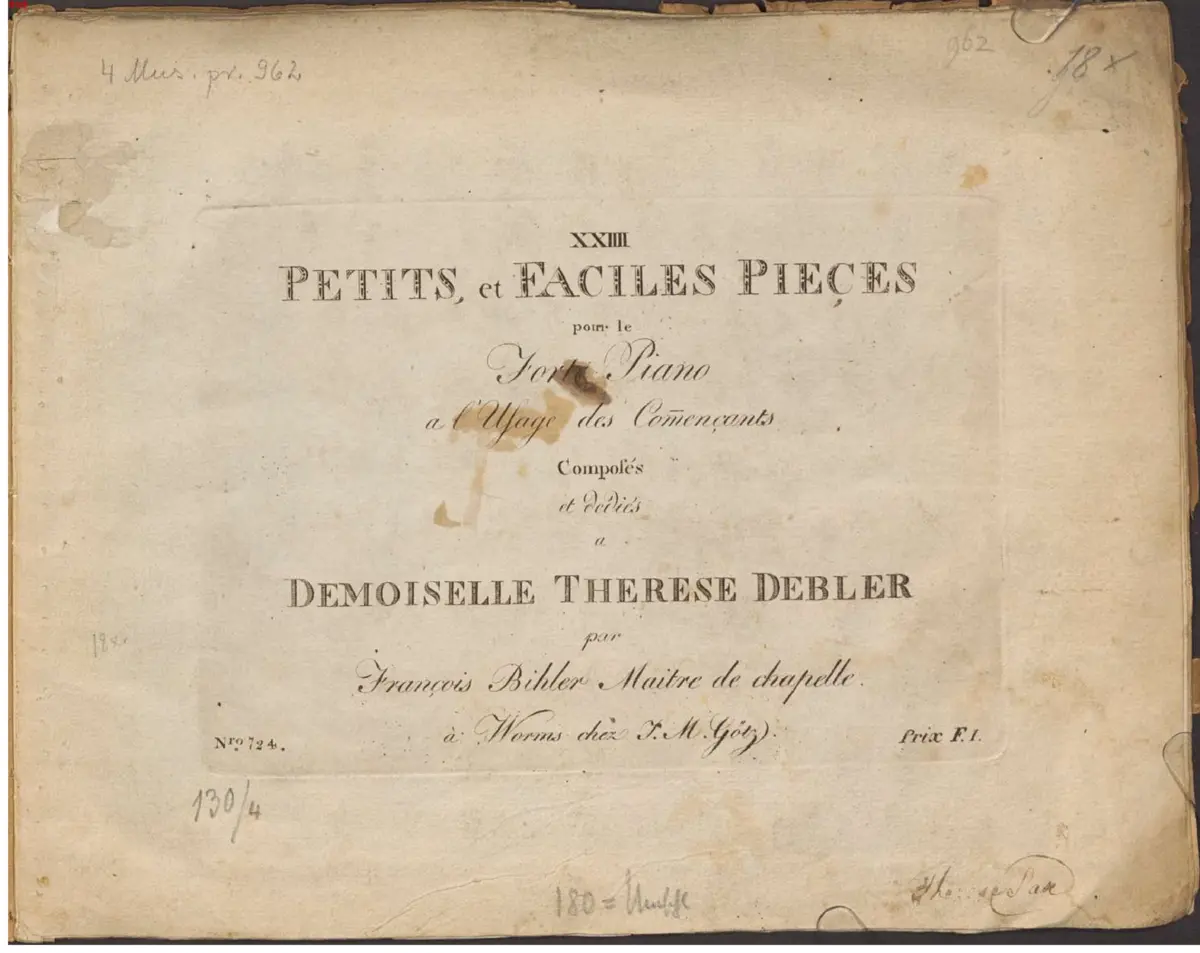 4 Mus. pr. 962
962
18x
XXIIII
PETITS, et FACILES PIEÇES
pour le
Forte Piano
a l'Uſage des Com̄ençants
Compoſés
et dediés
a
DEMOISELLE THERESE DEBLER
par
François Bihler Maitre de chapelle.
à Worms chez J. M. Götz.
Nro. 724.
Prix F. 1.
130/4
180 =